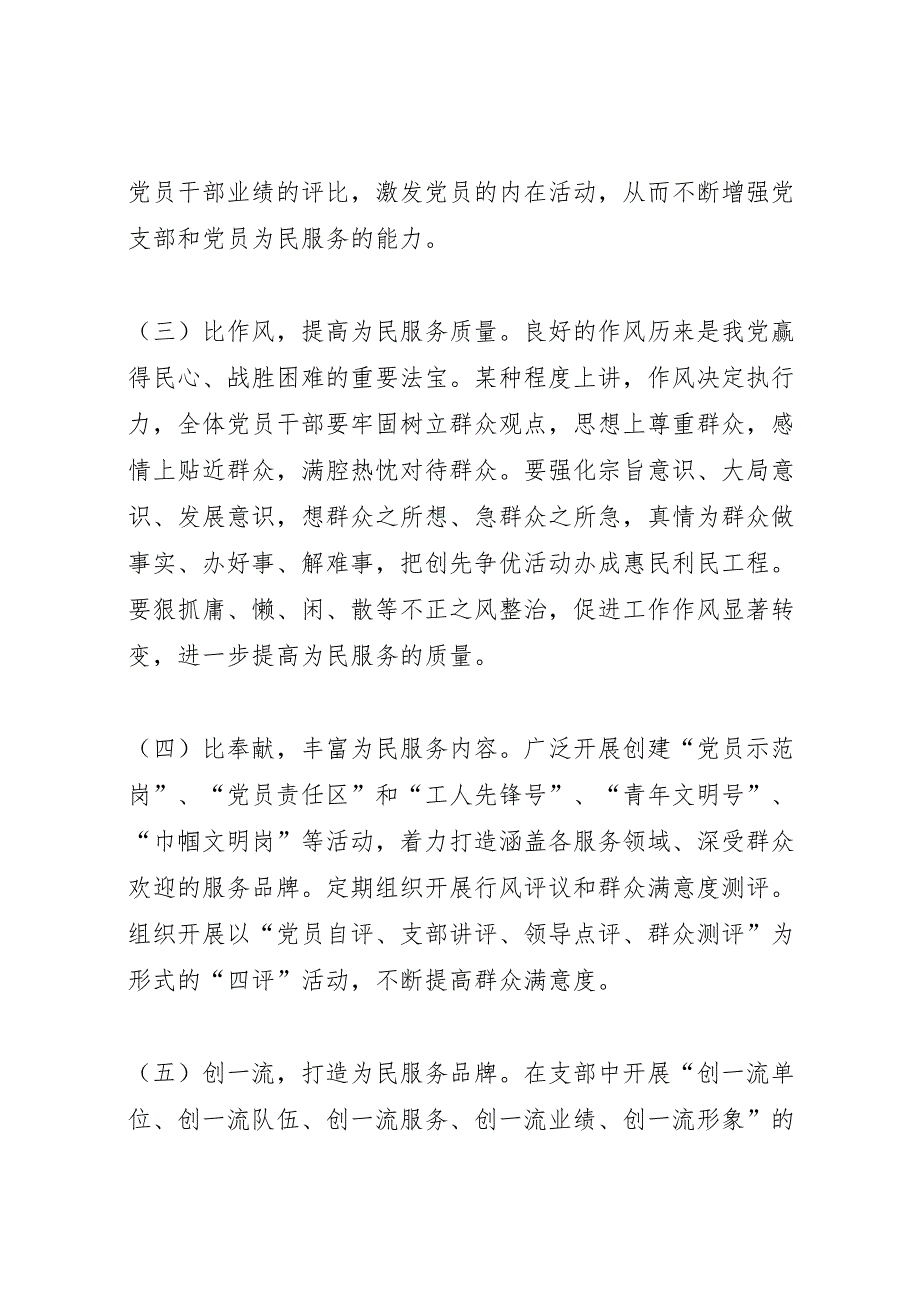 党员干部业绩的评比，激发党员的内在活动，从而不断增强党
支部和党员为民服务的能力。
（三）比作风，提高为民服务质量。良好的作风历来是我党赢
得民心、战胜困难的重要法宝。某种程度上讲，作风决定执行
力，全体党员干部要牢固树立群众观点，思想上尊重群众，感
情上贴近群众，满腔热忱对待群众。要强化宗旨意识、大局意
识、发展意识，想群众之所想、急群众之所急，真情为群众做
事实、办好事、解难事，把创先争优活动办成惠民利民工程。
要狠抓庸、懒、闲、散等不正之风整治，促进工作作风显著转
变，进一步提高为民服务的质量。
（四）比奉献，丰富为民服务内容。广泛开展创建“党员示范
岗”、“党员责任区”和“工人先锋号”、“青年文明号”、
“巾帼文明岗”等活动，着力打造涵盖各服务领域、深受群众
欢迎的服务品牌。定期组织开展行风评议和群众满意度测评。
组织开展以“党员自评、支部讲评、领导点评、群众测评”为
形式的“四评”活动，不断提高群众满意度。
（五）创一流，打造为民服务品牌。在支部中开展“创一流单
位、创一流队伍、创一流服务、创一流业绩、创一流形象”的